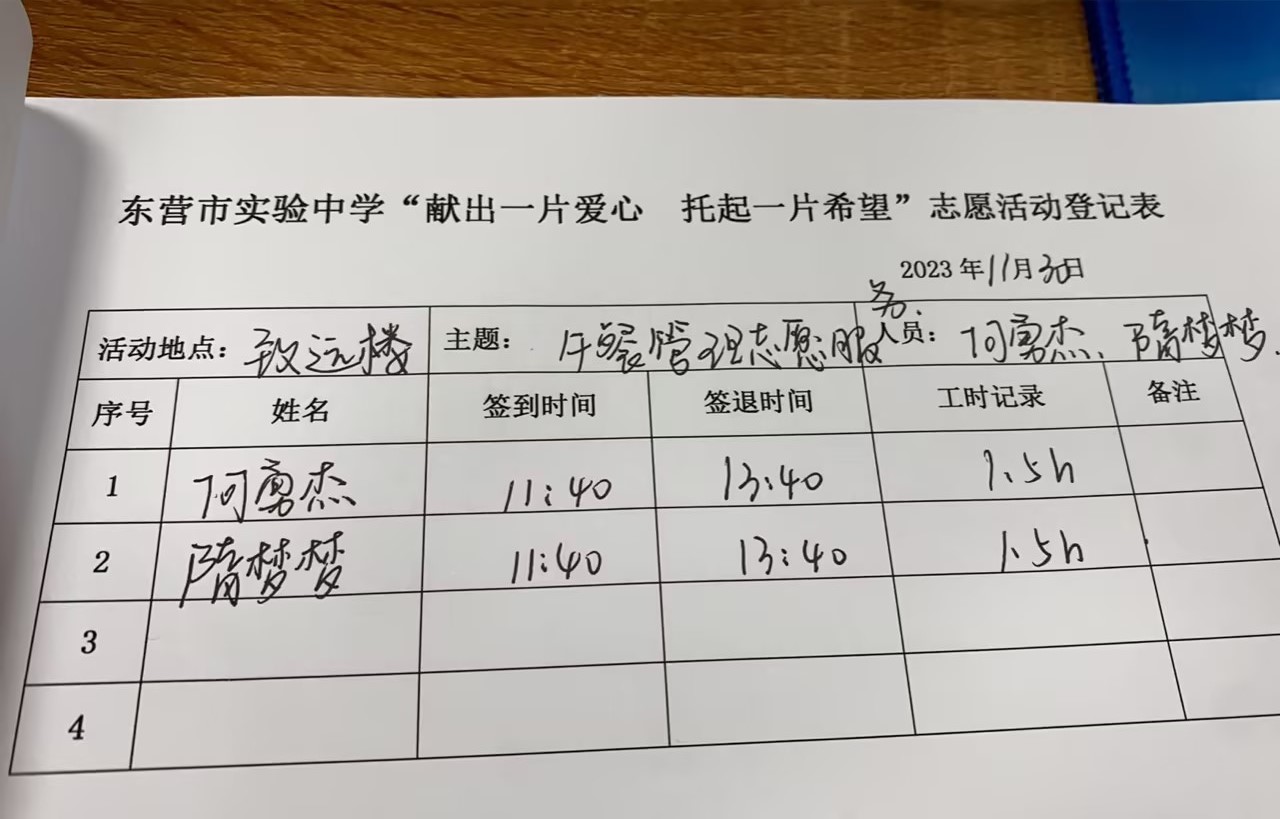 东营市实验中学“献出一片爱心 托起一片希望”志愿活动登记表
2023年11月30日
活动地点：致远楼 主题：午餐管理志愿服务. 人员：何勇杰、隋梦梦.
序号 姓名 签到时间 签退时间 工时记录 备注
1 何勇杰 11:40 13:40 1.5h
2 隋梦梦 11:40 13:40 1.5h
3
4